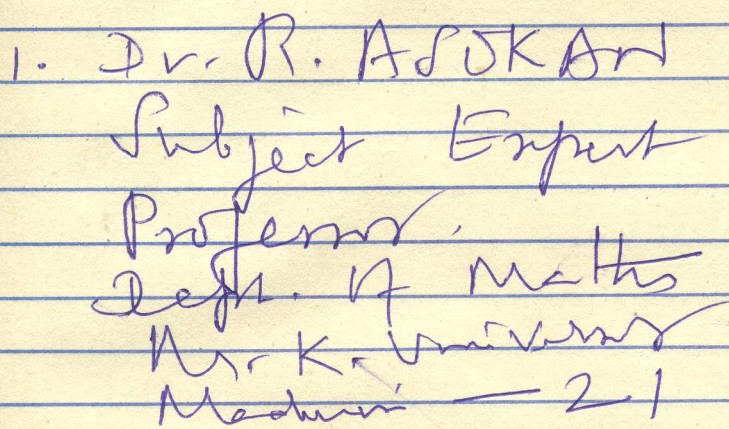 1. Dr. R. ASOKAN
Subject Expert
Professor.
Dept. of Maths
M. K. University
Madurai — 21